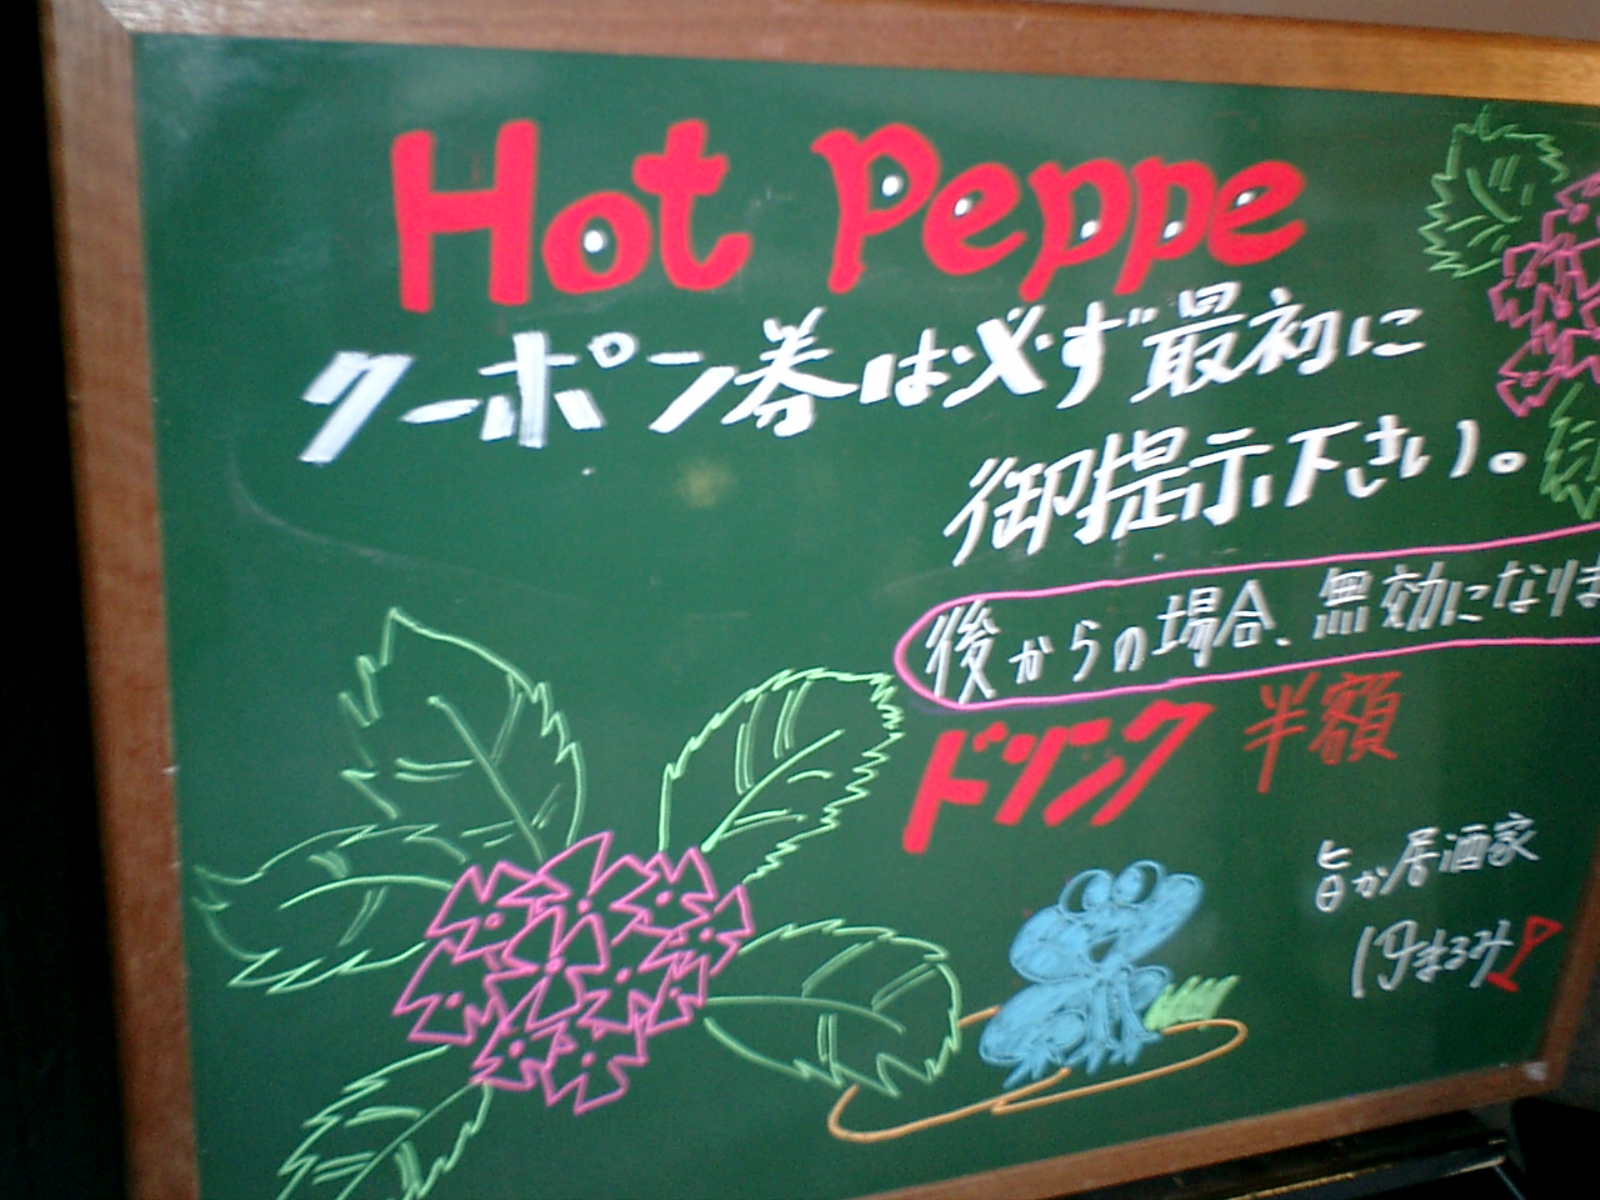 Hot Peppe
クーポン券は必ず最初に
御提示下さい。
後からの場合、無効になりま
ドリンク 半額
旨か居酒家
まるみ